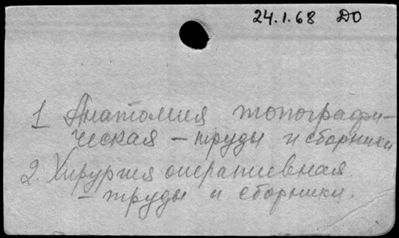 24.1.68 DO
1 Анатомия топографи-
ческая – труды и сборники
2. Хирургия оперативная
– труды и сборники.